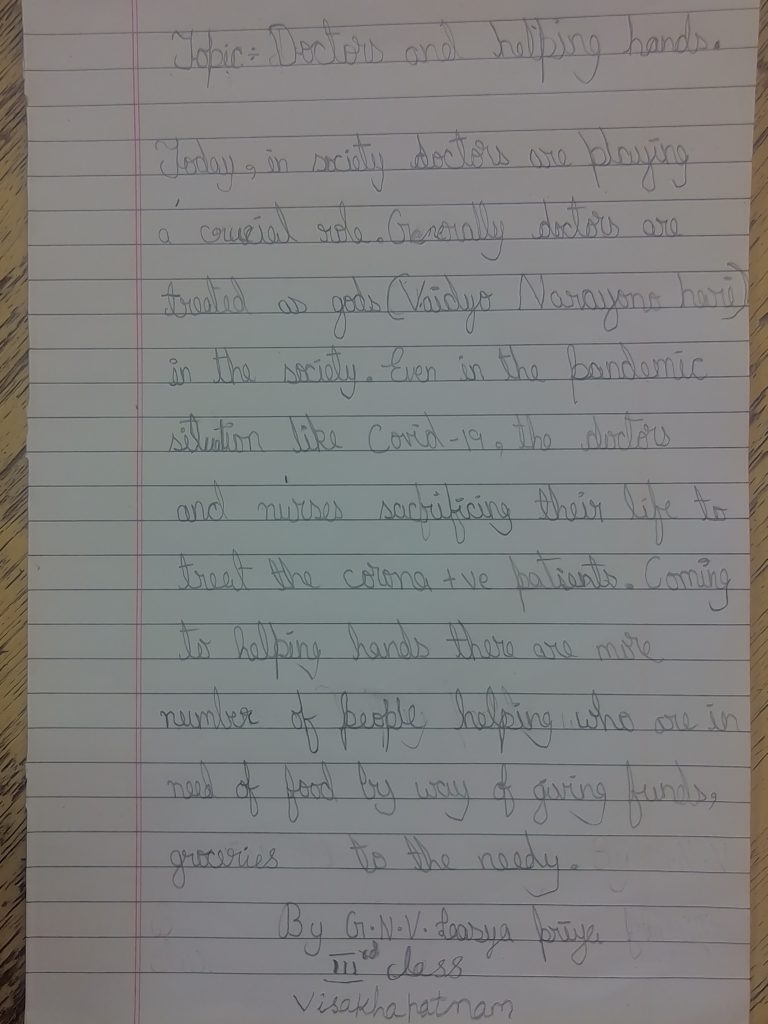 Topic:- Doctors and helping hands.
Today, in society doctors are playing
a crucial role. Generally doctors are
treated as gods (Vaidyo Narayono hari)
in the society. Even in the pandemic
situation like Covid-19, the doctors
and nurses sacrificing their life to
treat the corona +ve patients. Coming
to helping hands there are more
number of people helping who are in
need of food by way of giving funds,
groceries to the needy.
By G.N.V. Laasya priya
IIIrd class
Visakhapatnam